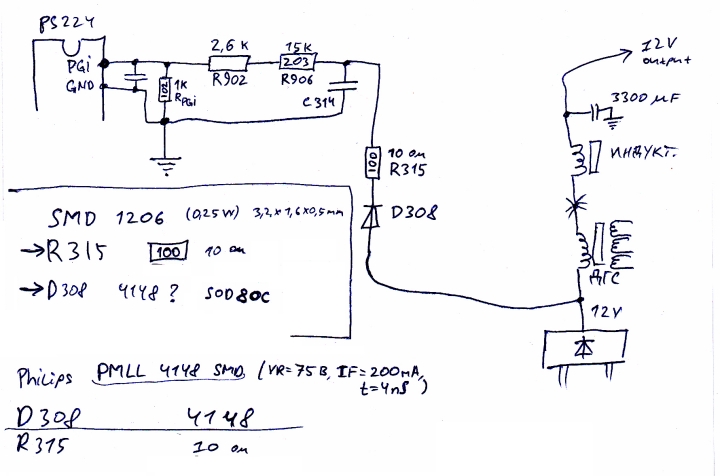 PS224
PGi
GND
102
1K
RPGi
2,6 K
R902
15K
203
R906
C314
100
10 ом
R315
D308
12V
output
3300 мF
ИНДУКТ.
ДГС
12V
SMD 1206 (0,25W) 3,2x1,6x0,5mm
→R315 100 10 ом
→D308 4148? SOD80C
Philips PMLL 4148 SMD (VR=75В, IF=200мА,
t=4nS)
D308 4148
R315 10 ом